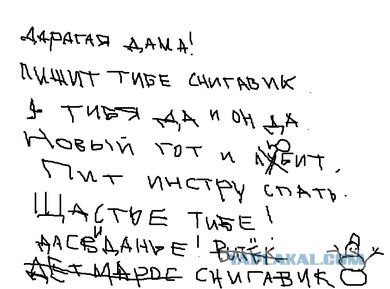 ДАРАГАЯ ДАМА!
ПИШИТ ТИБЕ СНИГАВИК
Я ТИБЯ ДА И ОН ДА.
НОВЫЙ ГОТ И ЮБИТ,
ПИТ ИНСТРУ СПАТЬ.
ЩАСТЬЕ ТИБЕ!
ДАСВИДАНЬЕ!
ДЕТ МАРОС СНИГАВИК
YAPLAKAL.COM